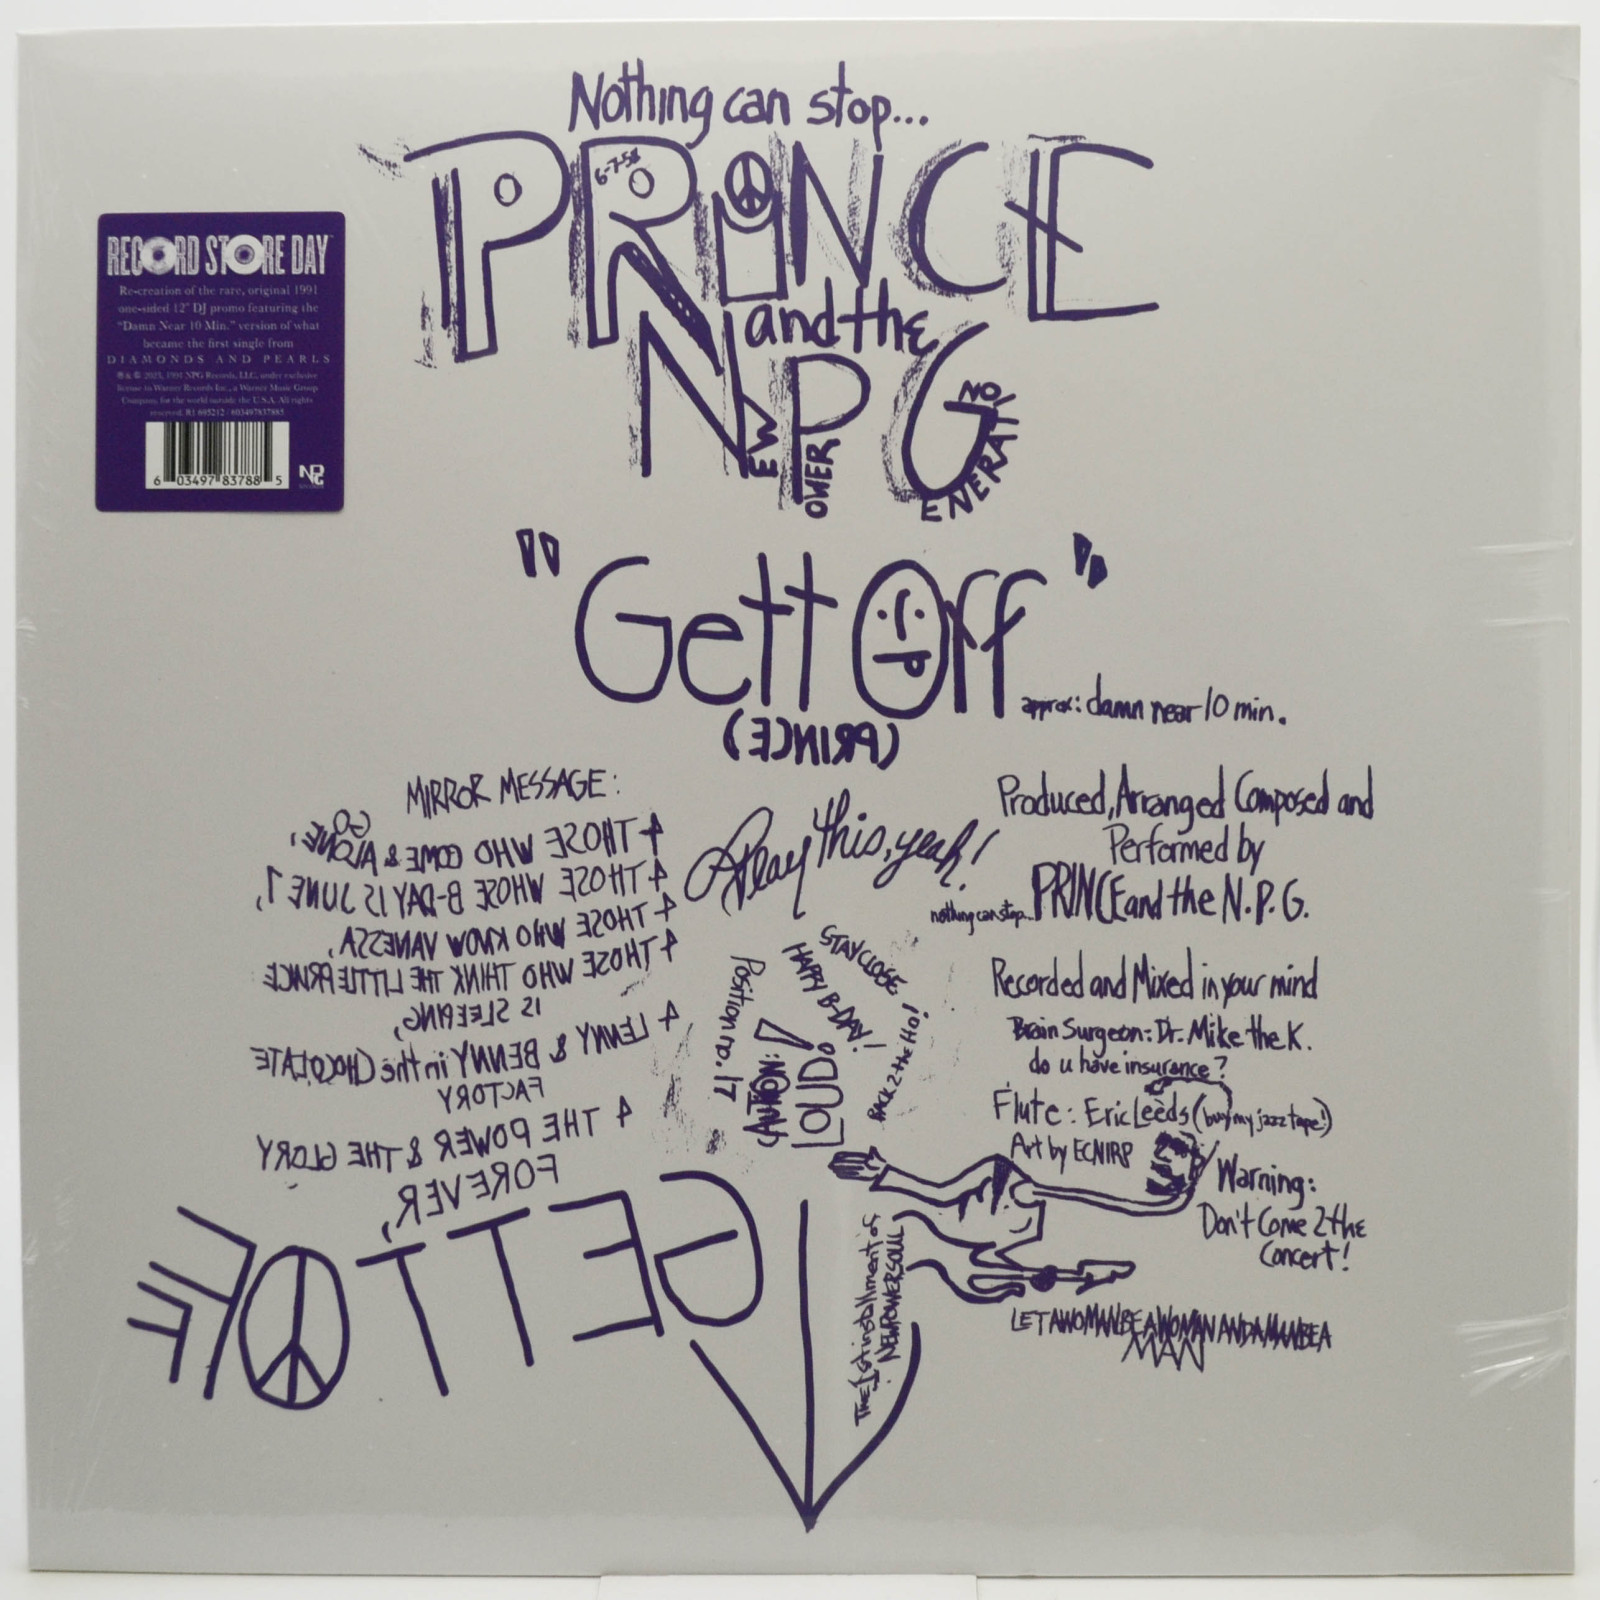 Nothing can stop...
PRINCE
6-7-58
and the
NPG
NEW POWER GENERATION
RECORD STORE DAY
Re-creation of the rare, original 1991
one-sided 12" DJ promo featuring the
"Damn Near 10 Min." version of what
became the first single from
DIAMONDS AND PEARLS
℗ & © 2023, 1991 NPG Records, LLC, under exclusive
license to Warner Records Inc., a Warner Music Group
Company, for the world outside the U.S.A. All rights
reserved. R1 695212 / 603497837885
6 03497 83788 5
NPG
"Gett Off"
approx: damn near 10 min.
(PRINCE)
MIRROR MESSAGE:
4 THOSE WHO COME & GO ALONE,
4 THOSE WHOSE B-DAY IS JUNE 7,
4 THOSE WHO KNOW VANESSA,
4 THOSE WHO THINK THE LITTLE PRINCE
IS SLEEPING,
4 LENNY & BENNY in the CHOCOLATE
FACTORY
4 THE POWER & THE GLORY
FOREVER,
GETT OFF
Play this, yeah!
STAY CLOSE
HAPPY B-DAY!
BACK 2 the HO!
Position no. 17
CAUTION:
LOUD!
Produced, Arranged Composed and
Performed by
nothing can stop... PRINCE and the N.P.G.
Recorded and Mixed in your mind
Brain Surgeon: Dr. Mike the K.
do u have insurance?
Flute: Eric Leeds (buy my jazz tape!)
Art by ECNIRP
Warning:
Don't Come 2 the
Concert!
The 1st installment of
NEW POWER SOUL
LET A WOMAN BE A WOMAN AND A MAN BE A
MAN